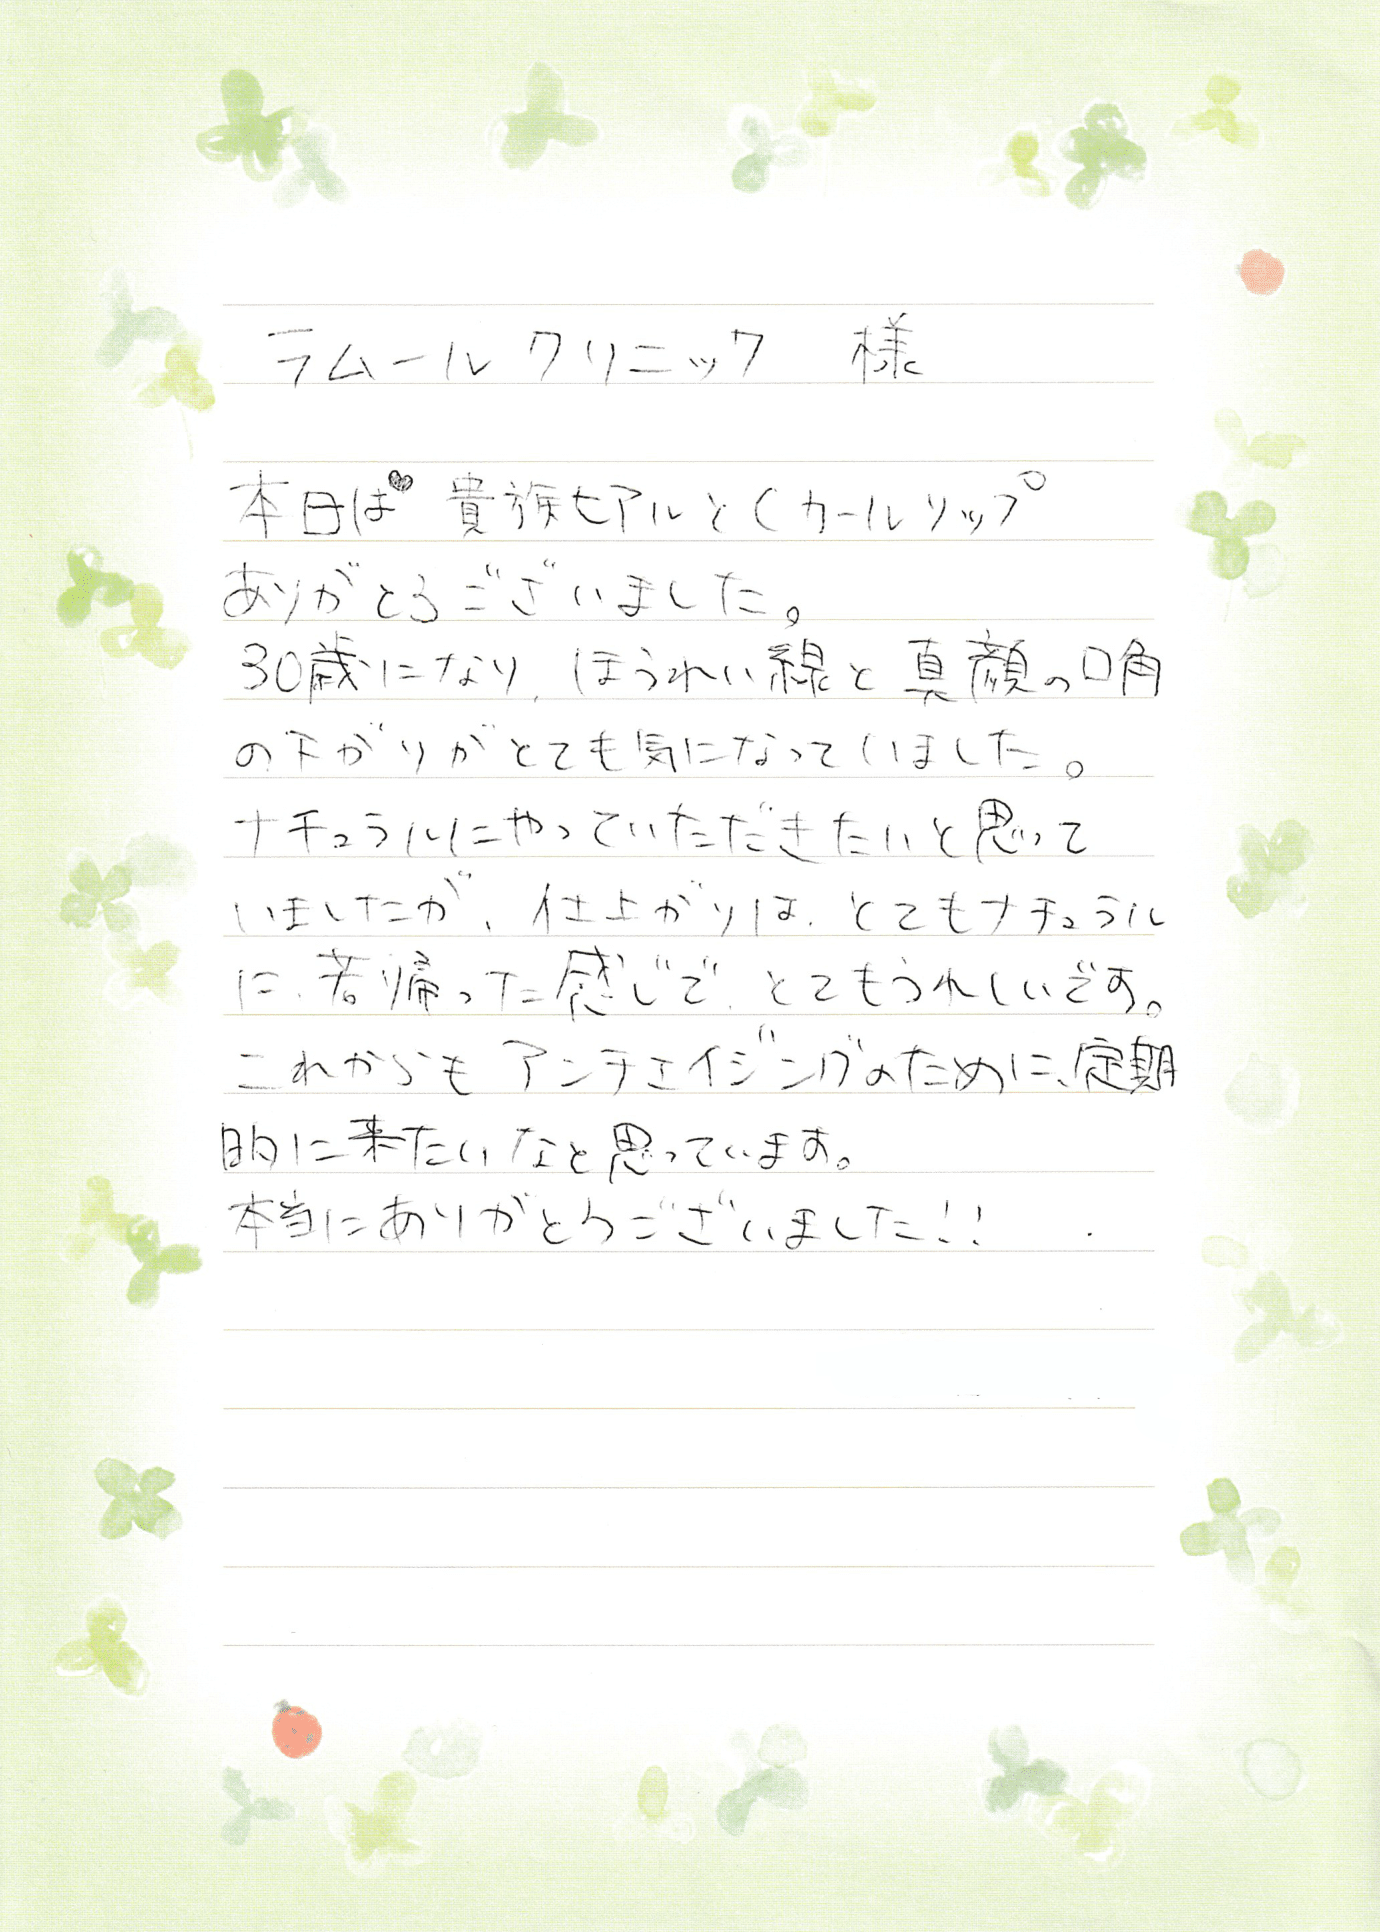 ラムールクリニック 様
本日は♥貴族ヒアルとCカールリップ
ありがとうございました。
30歳になり、ほうれい線と真顔の口角
の下がりがとても気になっていました。
ナチュラルにやっていただきたいと思って
いましたが、仕上がりは、とてもナチュラル
に、若帰った感じで、とてもうれしいです。
これからもアンチエイジングのために、定期
的に来たいなと思っています。
本当にありがとうございました!!